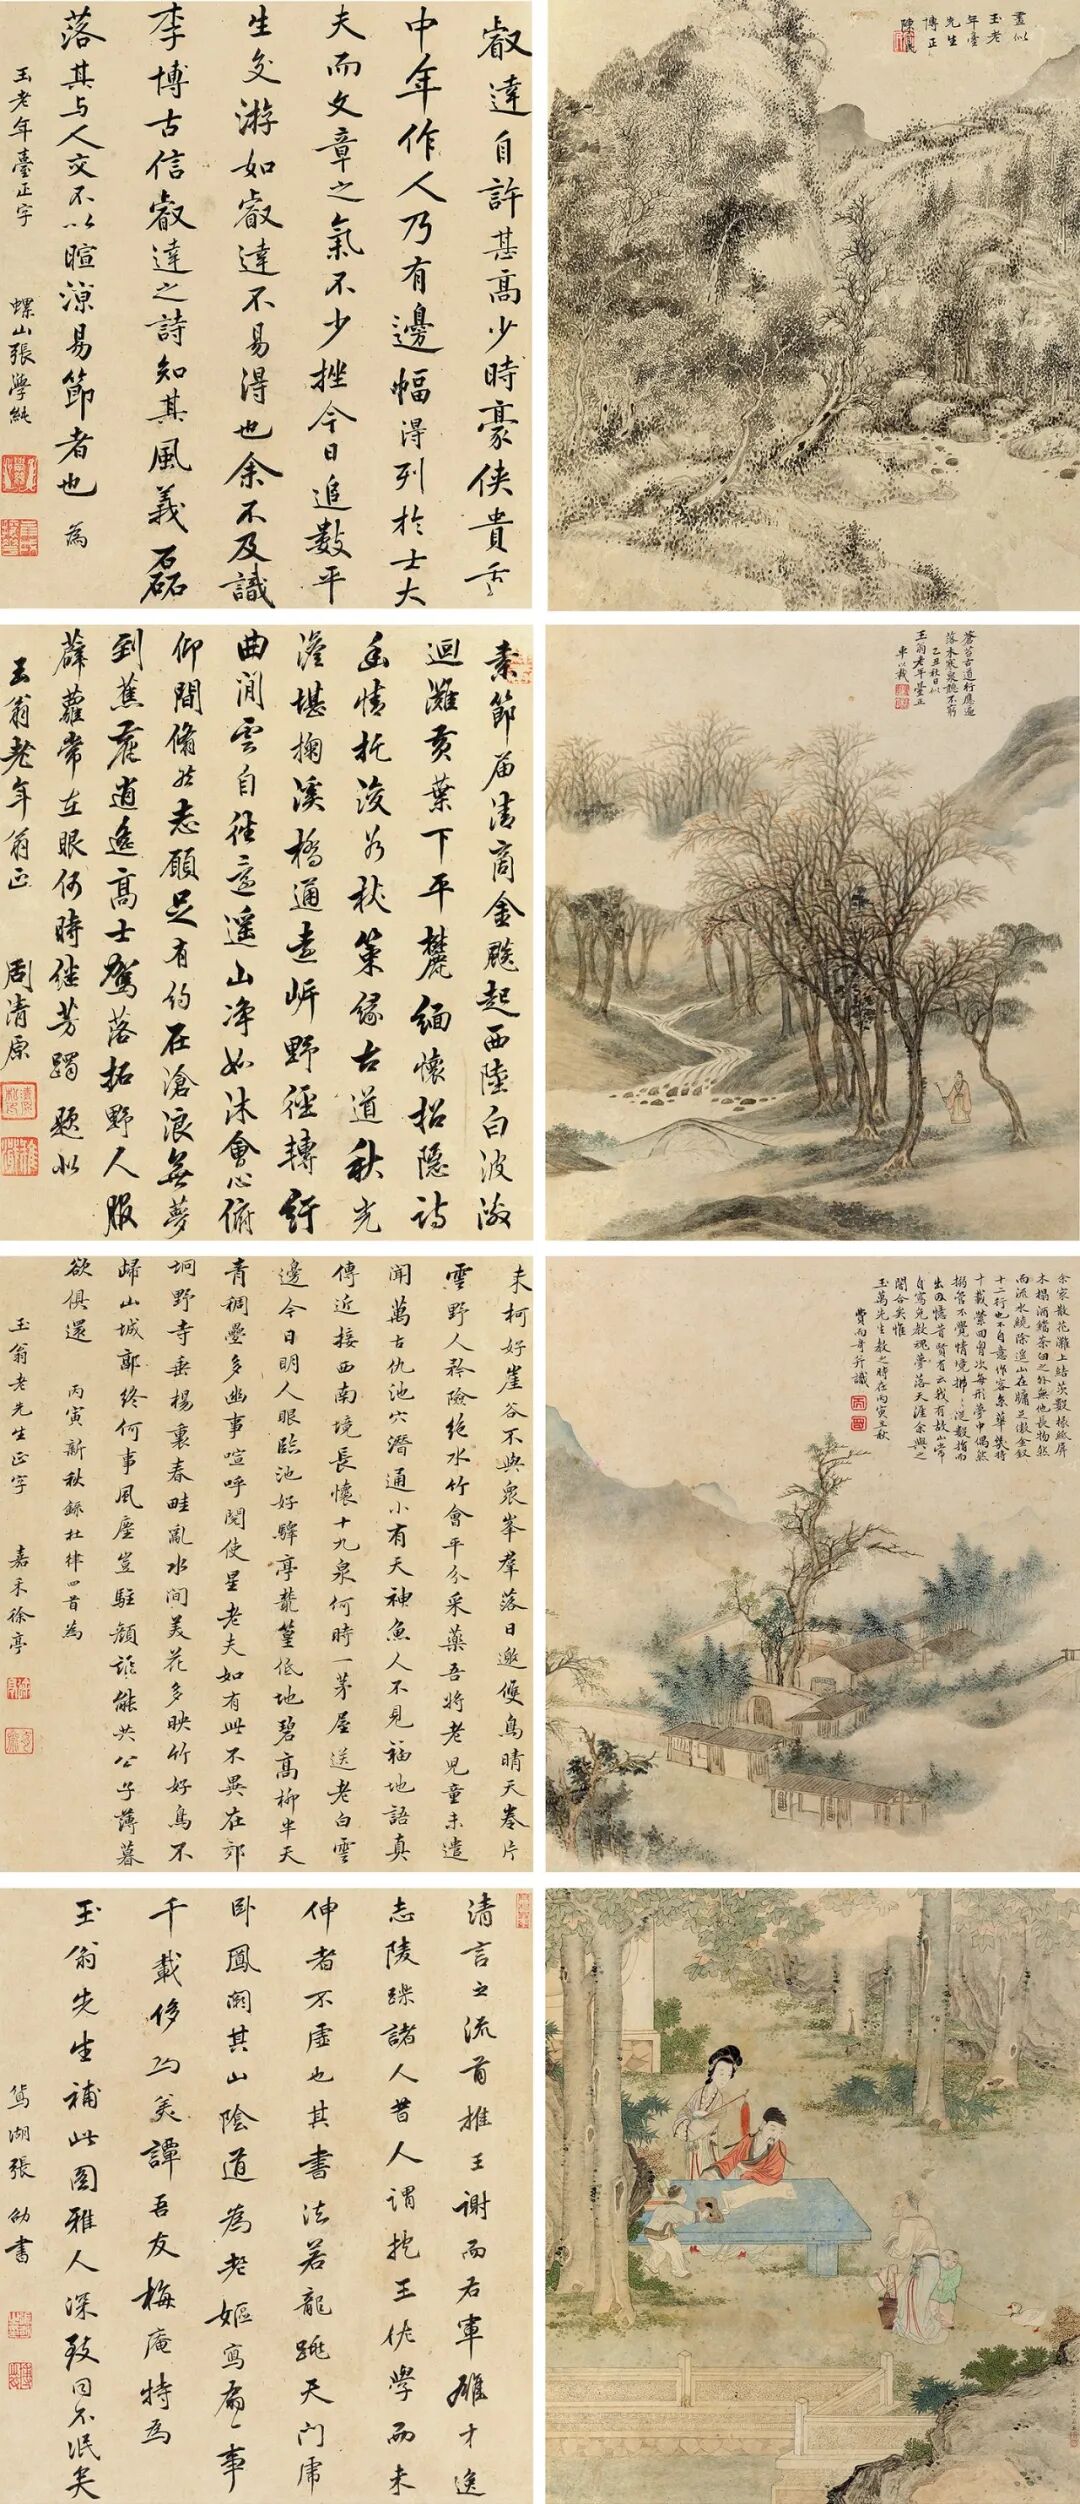 叡達自許甚高少時豪俠貴重
中年作人乃有邊幅得列於士大
夫而文章之氣不少挫今日追數平
生交游如叡達不易得也余不及識
李博古信叡達之詩知其風義磊
落其与人交不以暄涼易節者也 為
玉老年臺正字 螺山張學純
畫似
玉老
年臺
先生
博正
素節届清商金飈起西陸白波激
迴灘黃葉下平麓緬懷招隱詩
幽情托浚谷杖策緣古道秋光
澹堪掬溪橋通遠岍野徑轉紆
曲閒雲自往還遥山净如沐會心俯
仰間翛然志願足有約在滄浪無夢
到蕉鹿逍遙高士駕落拓野人服
薜蘿常在眼何時继芳躅 題似
玉翁老年翁正 周清原
蒼苔古道行應遍
落木寒泉聽不窮
乙丑秋日似
玉翁老年臺正
車以載
未柯好崖谷不與衆峯羣落日邀雙鳥晴天卷片
雲野人矜險絶水竹會平分采藥吾將老兒童未遣
聞萬古仇池穴潛通小有天神魚人不見福地語真
傳近接西南境長懷十九泉何時一茅屋送老白雲
邊今日明人眼臨池好驛亭叢篁低地碧高柳半天
青稠疊多幽事喧呼閱使星老夫如有此不異在郊
坰野寺垂楊裏春畦亂水間美花多映竹好鳥不
歸山城郭終何事風塵豈駐顏誰能共公子薄暮
欲俱還 丙寅新秋錄杜律四首為
玉翁老先生正字 嘉禾徐亭
余家散花灘上結茨數椽紙屏
木榻酒鐺茶臼之外無他長物然
而流水繞除遥山在牖足傲金釵
十二行也不自意作客京華獎待
十載縈回胷次每形夢中偶然
搦管不覺情境拂拂從數指而
出因憶昔賢有云我有故山常
自寫免教魂夢落天涯余與之
闇合矣惟
玉萬先生教之時在丙寅玉秋
費而奇并識
清言之流首推王謝而右軍雄才逸
志陵躁諸人昔人謂抱王佐學而未
伸者不虛也其書法若龍跳天門虎
卧鳳閣其山陰道為老嫗寫扇一事
千載侈為美譚吾友梅庵特為
玉翁先生補此圖雅人深致曰不泯矣
鴛湖張劭書